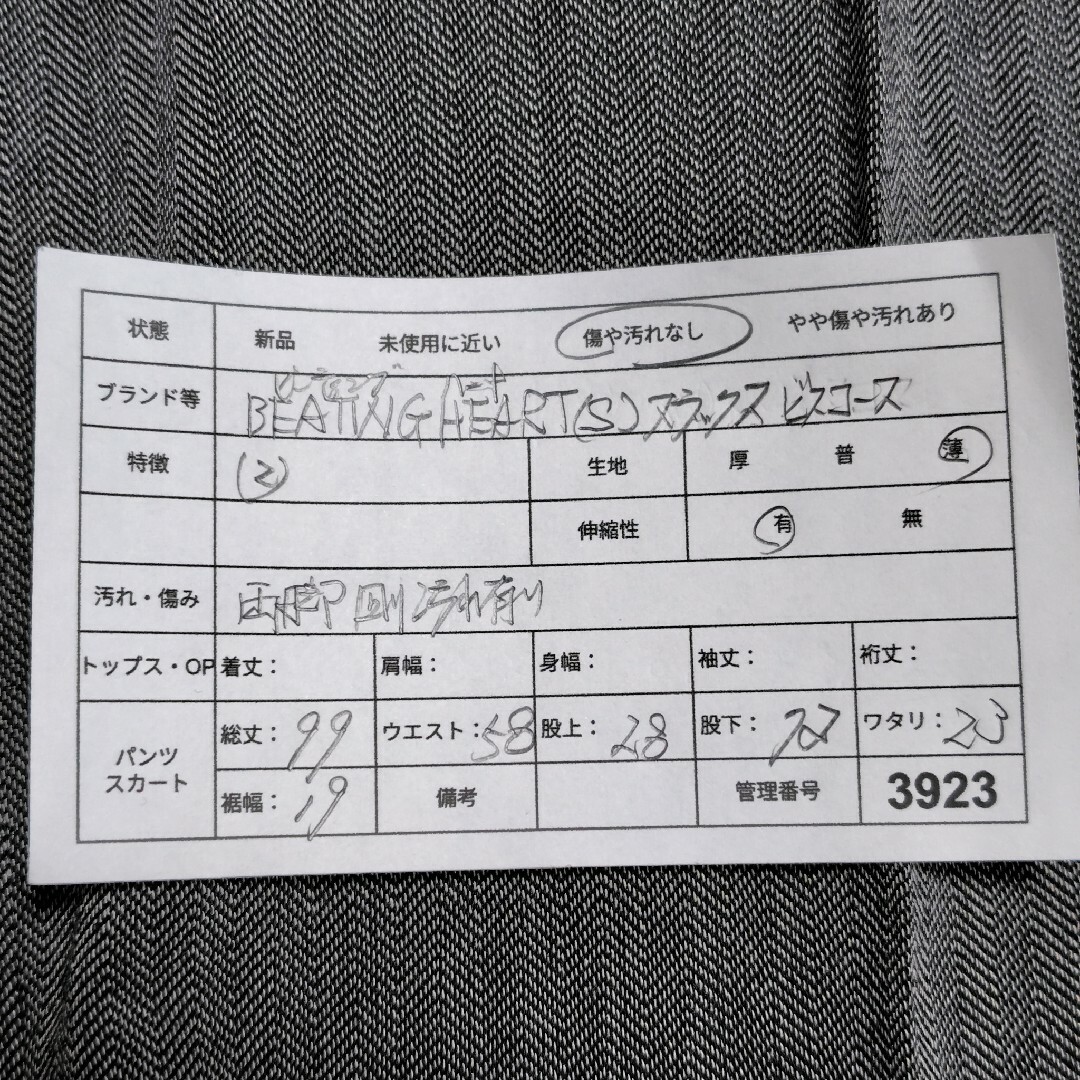 状態 新品 未使用に近い 傷や汚れなし やや傷や汚れあり
ビーティング ハート
ブランド等 BEATING HEART(S) スラックス ビスコース
特徴 (2) 生地 厚 普 薄
伸縮性 有 無
汚れ・傷み 汚れ有り
トップス・OP 着丈: 肩幅: 身幅: 袖丈: 裄丈:
パンツ スカート 総丈: 99 ウエスト: 58 股上: 28 股下: 72 ワタリ: 23
裾幅: 19 備考 管理番号 3923